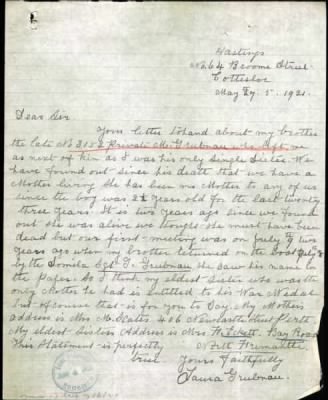 Hastings
No 64 Broome Street
Cottesloe
May 27. 5. 1921.
Dear Sir
Your letter to hand about my brother
the late No 3152 Private M. Gruebnau who left me
as next of kin as I was his only Single Sister. We
have found out since his death that we have a
Mother living She has been no Mother to any of us
since the boy was 2½ years old for the last twenty
three years. It is two years ago since we found
out she was alive we thought she must have been
dead but our first meeting was on July two
years ago when my brother returned on the boat
by the Somite Sgt Gruebnau She saw his name in
the Papers. So I think my eldest Sister who was the
only Mother he had is entitled to his War Medal
but of course that is for you to Say. My Mothers
address is Mrs M. Scates. 486 Newcastle Street Perth
My eldest Sisters Address is Mrs Bay Road
This Statement is perfectly North Fremantle
true. Yours Faithfully
Laura Gruebnau.